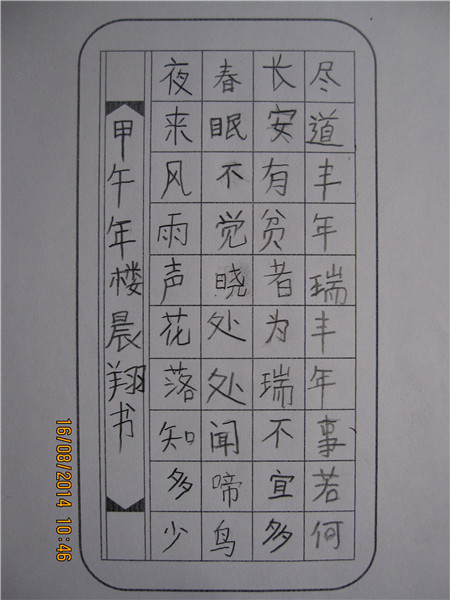 尽道丰年瑞丰年事若何
长安有贫者为瑞不宜多
春眠不觉晓处处闻啼鸟
夜来风雨声花落知多少
甲午年楼晨翔书
16/08/2014 10:46